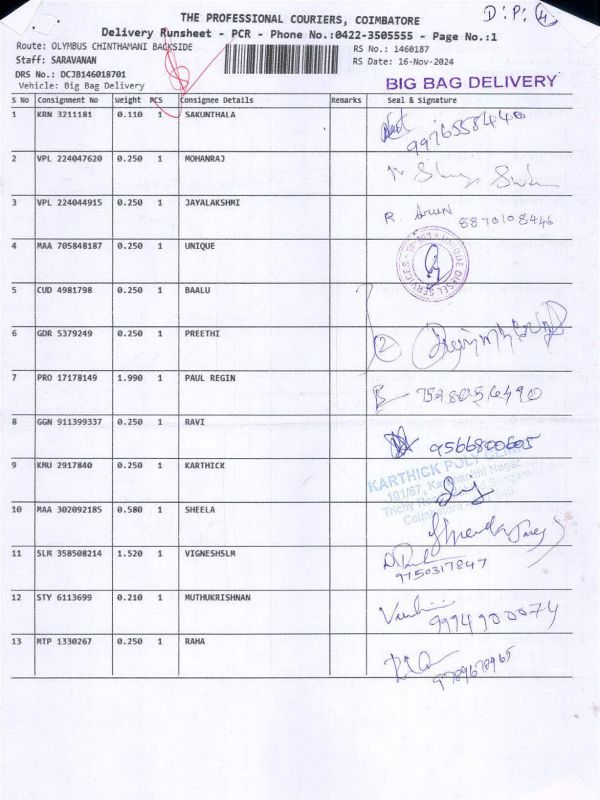 D.P. 4
THE PROFESSIONAL COURIERS, COIMBATORE
Delivery Runsheet - PCR - Phone No.:0422-3505555 - Page No.:1
Route: OLYMBUS CHINTHAMANI BACKSIDE RS No.: 1460187
Staff: SARAVANAN RS Date: 16-Nov-2024
DRS No.: DCJB146018701
Vehicle: Big Bag Delivery BIG BAG DELIVERY
S No Consignment No Weight PCS Consignee Details Remarks Seal & Signature
1 KRN 3211181 0.110 1 SAKUNTHALA
9976558440
2 VPL 224047620 0.250 1 MOHANRAJ
3 VPL 224044915 0.250 1 JAYALAKSHMI R. Arun 8870108446
4 MAA 705848187 0.250 1 UNIQUE UNIQUE DIESEL SERVICES
5 CUD 4981798 0.250 1 BAALU
6 GDR 5379249 0.250 1 PREETHI 2
7 PRO 17178149 1.990 1 PAUL REGIN
8 GGN 911399337 0.250 1 RAVI 9566800605
9 KMU 2917840 0.250 1 KARTHICK KARTHICK
101/67,
Nagar
Trichy
10 MAA 302092185 0.580 1 SHEELA
11 SLM 358508214 1.520 1 VIGNESHSLM
9750317847
12 STY 6113699 0.210 1 MUTHUKRISHNAN 9994900074
13 MTP 1330267 0.250 1 RAHA
9789678965